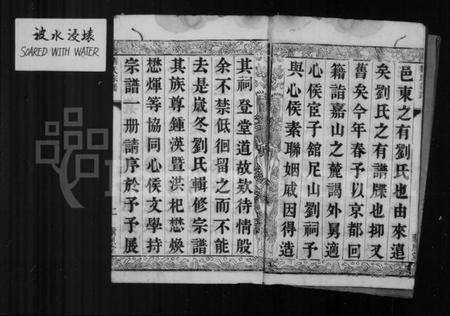 被水浸壞
SOARED WITH WATER
邑東之有劉氏也由來遠
矣劉氏之有譜牒也抑又
舊矣今年春予以京都回
籍詣嘉山之麓謁外舅適
心侯宦子館足山劉祠予
與心侯素聯姻戚因得造
其祠登堂道故欵待情殷
余不禁低徊留之而不能
去是歲冬劉氏輯修宗譜
其族尊鍾漢暨洪杞懋煥
懋煇等協同心侯文學持
宗譜一册請序於予予展